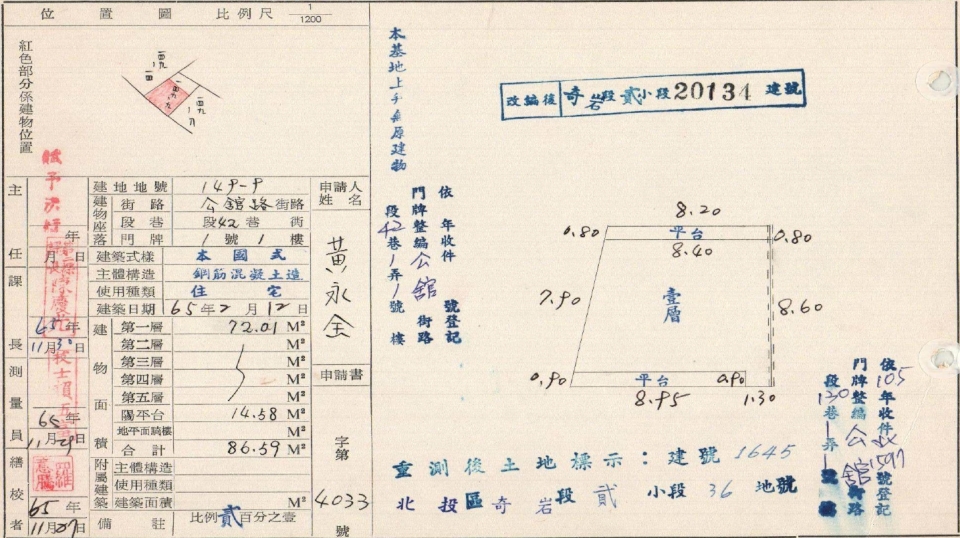 位置圖 比例尺 1/1200
紅色部分係建物位置
建地地號 149-9
建物座落 街路 公館路 街路
段巷 段42巷 衖
門牌 1號1樓
建築式樣 本國式
主體構造 鋼筋混凝土造
使用種類 住宅
建築日期 65年2月12日
建物面積
第一層 72.01 M²
第二層 M²
第三層 M²
第四層 M²
第五層 M²
陽平台 14.58 M²
地平面騎樓 M²
合計 86.59 M²
附屬建築
主體構造
使用種類
建築面積 M²
備註 比例貳百分之壹
申請人姓名
黃永全
申請書
字第
4033
號
主任課長
年
月 日
65年
11月30日
測量員
65年
11月29日
繕校者
65年
11月27日
本基地上 無原建物
依 年收件 號登記
門牌整編公館街路
段42巷1弄1號 樓
改編後 奇岩段貳小段20134 建號
8.20
0.80 平台 0.80
8.40
7.90 壹層 8.60
0.90 平台 0.90
8.95 1.30
重測後土地標示：建號1645
北投區奇岩段貳小段36地號
依105年收件 1597號登記
門牌整編公館街路
段130巷1弄1號